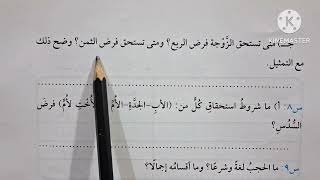 جـ) متى تستحق الزَّوْجة فرض الربع؟ ومتى تستحق فرض الثمن؟ وضح ذلك
مع التمثيل.
س٨: أ) ما شروطُ استحقاقِ كُلٍّ من: (الأبِ-الجدَّةِ-الأُمِّ-الأُختِ لأُمٍّ) فرضَ
السُّدُسِ؟
س٩: ما الحجبُ لغةً وشرعًا؟ وما أقسامُه إجمالًا؟
KINEMASTER